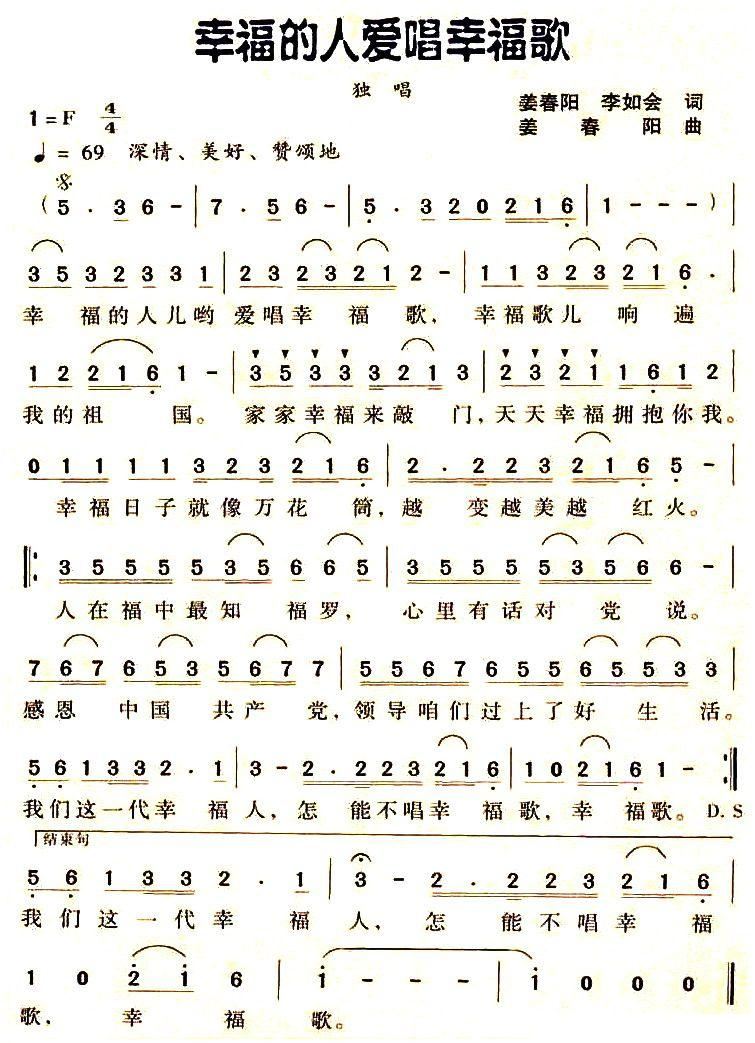 幸福的人爱唱幸福歌
独 唱
姜春阳 李如会 词
1=F 4/4
姜 春 阳 曲
♩= 69 深情、美好、赞颂地
(5 . 3 6 - | 7 . 5 6 - | 5 . 3 2 0 2 1 6 | 1 - - - ) |
3 5 3 2 3 3 1 | 2 3 2 3 2 1 2 - | 1 1 3 2 3 2 1 6 .
幸 福的人儿哟 爱唱幸 福 歌, 幸福歌儿 响 遍
1 2 2 1 6 1 - | 3 5 3 3 3 2 1 3 | 2 3 2 1 1 6 1 2 |
我的祖 国。 家家幸福来敲 门,天天幸福拥抱你我。
0 1 1 1 1 3 2 3 2 1 6 | 2 . 2 2 3 2 1 6 5 - |
幸福日子就像万花 筒,越 变越美越 红火。
‖: 3 5 5 5 5 3 5 6 6 5 | 3 5 5 5 5 3 5 6 6 - |
人在福中最知 福罗, 心里有话对 党 说。
7 6 7 6 5 3 5 6 7 7 | 5 5 6 7 6 5 5 6 5 5 3 3 |
感恩 中国 共产 党,领导咱们过上了好 生 活。
5 6 1 3 3 2 . 1 | 3 - 2 . 2 2 3 2 1 6 | 1 0 2 1 6 1 - :‖
我们这一代幸 福人,怎 能不唱幸 福歌,幸 福歌。D.S
结束句
5 6 1 3 3 2 . 1 | 3 - 2 . 2 2 3 2 1 6
我们这一代幸 福 人,怎 能不唱幸 福
1 0 2 1 6 | 1 - - - | 1 0 0 0 ‖
歌, 幸 福 歌。